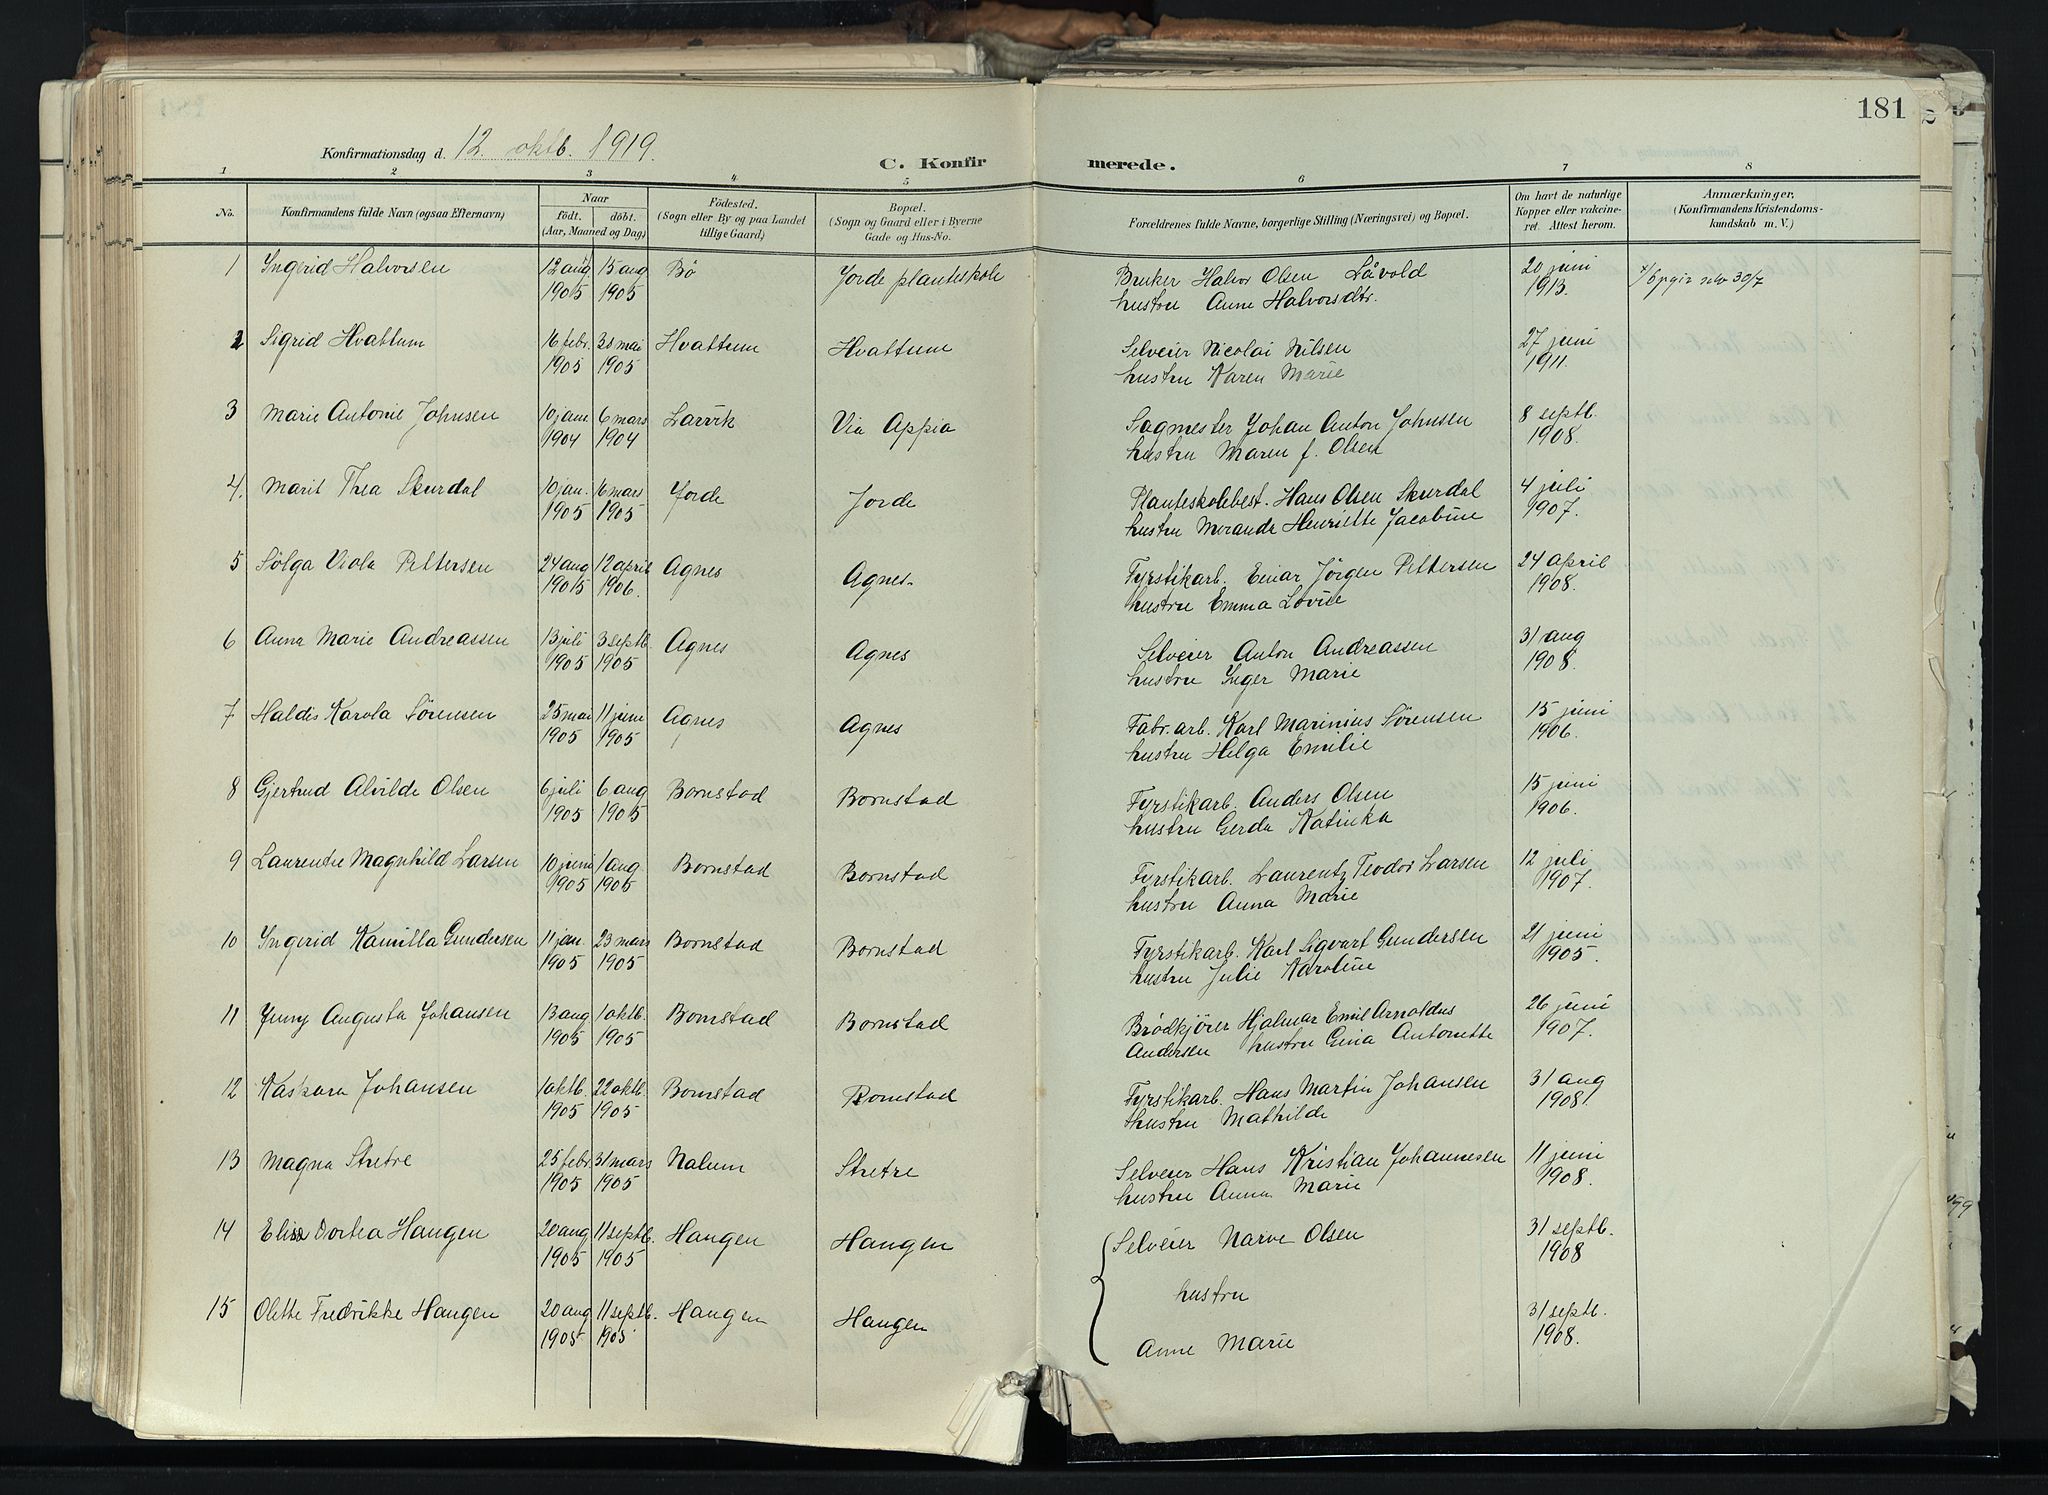 181
Konfirmationsdag d. 12. oktb. 1919.
C. Konfirmerede.
1 2 3 4 5 6 7 8
No. Konfirmandens fulde Navn (ogsaa Efternavn) Naar født. døbt. (Aar, Maaned og Dag) Fødested. (Sogn eller By og paa Landet tillige Gaard) Bopæl. (Sogn og Gaard eller i Byerne Gade og Hus-No. Forældrenes fulde Navne, borgerlige Stilling (Næringsvei) og Bopæl. Om havt de naturlige Kopper eller vakcineret. Attest herom. Anmærkninger. (Konfirmandens Kristendomskundskab m. V.)
1 Ingerid Halvorsen 12 aug 1905 15 aug 1905 Bö Jorde planteskole Bruker Halvor Olsen Låvold hustru Anne Halvorsdtr. 20 juni 1913. 30/7
2 Sigrid Hvattum 16 febr. 1905 31 mai 1905 Hvattum Hvattum Selveier Nicolai Nilsen hustru Karen Marie 27 juni 1911.
3 Marie Antonie Johnsen 10 jan. 1904 6 mars 1904 Larvik Via Appia Sagmester Johan Anton Johnsen hustru Maren f. Olsen 8 septb. 1908.
4. Marit Thea Skurdal 10 jan. 1905 16 mars 1905 Jorde Jorde Planteskolebest. Hans Olsen Skurdal hustru Merande Henriette Jacobine 4 juli 1907.
5 Sölga Viola Pettersen 24 aug 1905 12 april 1906. Agnes Agnes. Fyrstikarb. Einar Jörgen Pettersen hustru Emma Lovise 24 april 1908.
6 Anna Marie Andreassen 13 juli 1905 3 septb. 1905 Agnes Agnes Selveier Anton Andreassen hustru Inger Marie 31 aug 1908.
7 Haldis Karola Sörensen 25 mai 1905 11 juni 1905 Agnes Agnes Fabr. arb. Karl Marinius Sörensen hustru Helga Emilie 15 juni 1906.
8 Gjertrud Alvilde Olsen 6 juli 1905 6 aug 1905 Bornstad Bornstad Fyrstikarb. Anders Olsen hustru Gerda Katinka 15 juni 1906.
9 Laurentze Magnhild Larsen 10 juni 1905 1 aug. 1905 Bornstad Bornstad Fyrstikarb. Laurentz Teodor Larsen hustru Anna Marie 12 juli 1907.
10 Ingerid Kamilla Gundersen 11 jan. 1905 23 mars 1905 Bornstad Bornstad Fyrstikarb. Karl Sigvart Gundersen hustru Julie Karoline 21 juni 1905.
11 Jenny Augusta Johansen 13 aug 1905 1 oktb. 1905 Bornstad Bornstad Brödkjörer Hjalmar Emil Arnoldus Andersen hustru Gina Antonette 26 juni 1907.
12 Kaspara Johansen 1 oktb. 1905 22 oktb. 1905 Bornstad Bornstad Fyrstikarb. Hans Martin Johansen hustru Mathilde 31 aug 1908.
13 Magna Stretre 25 febr. 1905 31 mars 1905 Nalum Stretre Selveier Hans Kristian Johannesen hustru Anna Marie 11 juni 1908.
14 Elise Dortea Haugen 20 aug 1905 11 septb. 1905 Haugen Haugen Selveier Narve Olsen 31 septb. 1908
hustru
15 Olette Fredrikke Haugen 20 aug 1905 11 septb. 1905 Haugen Haugen Anne Marie 31 septb. 1908.